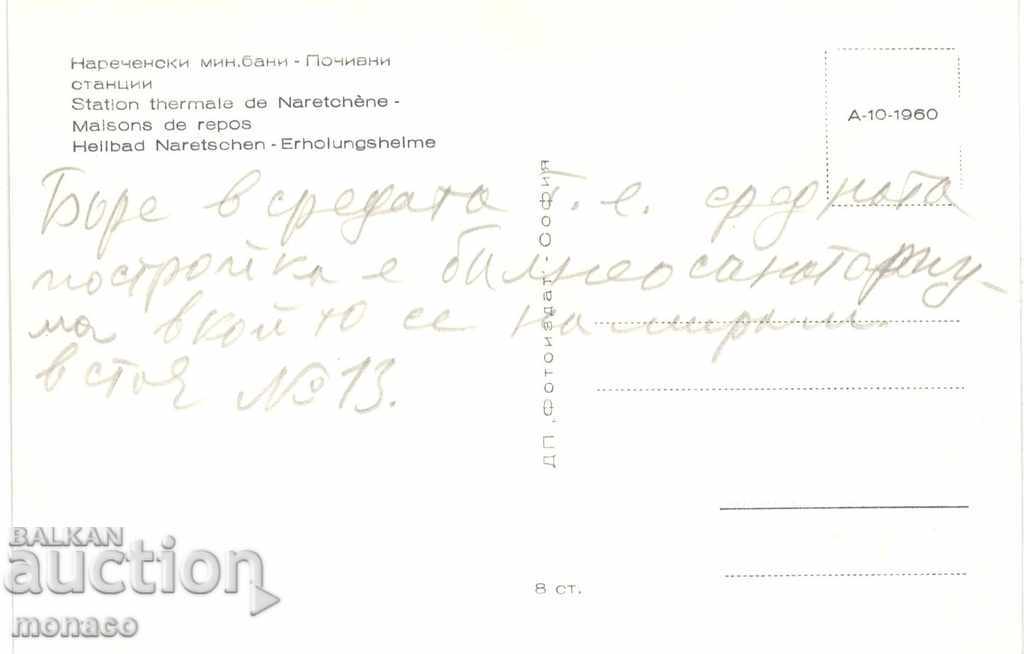 Нареченски мин.бани - Почивни
станции
Station thermale de Naretchène -
Maisons de repos
Heilbad Naretschen - Erholungsheime
А-10-1960
в средата т. е. средната
постройка е балнеосанаториу-
ма в който се намирам.
в стоя № 13.
ДП „Фотоиздат" - София
8 ст.
BALKAN
auction
monaco